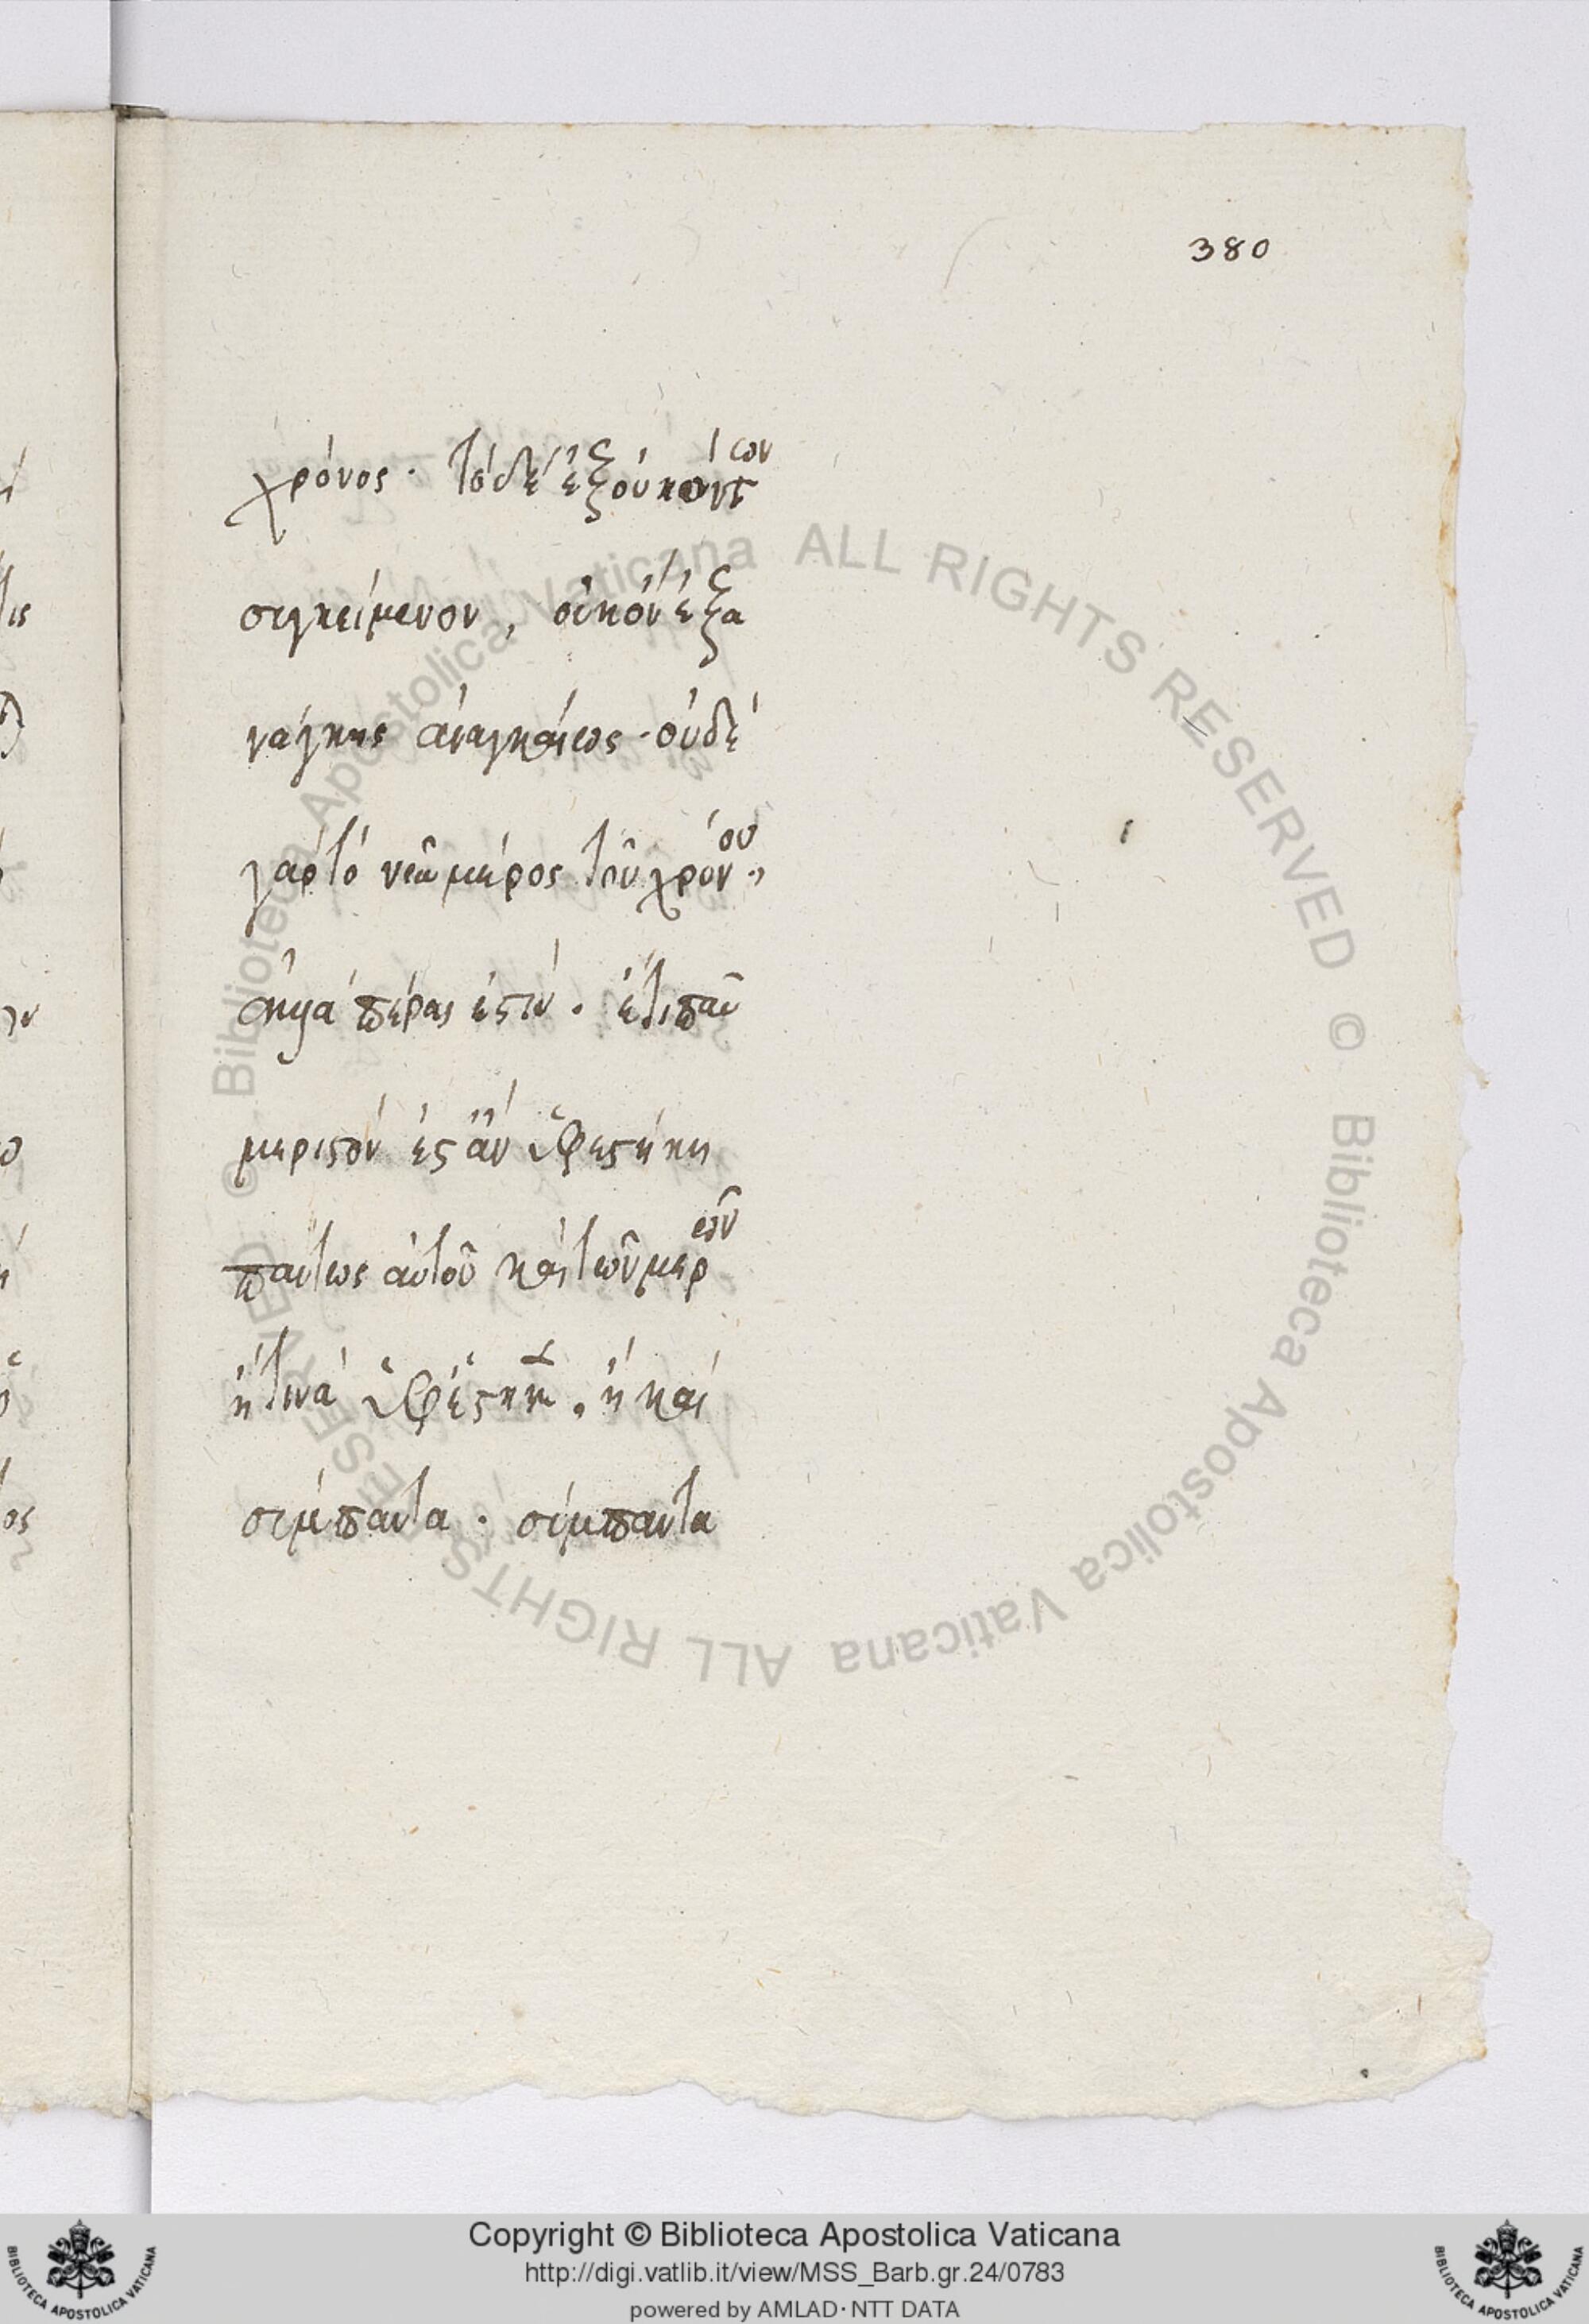 380
χρόνος · τὸ δὲ ἐξ οὐκ ὄντων
συγκείμενον, οὐκ ὂν ἐξ ἀ
νάγκης ἀναγκαίως · οὐδὲ
γὰρ τὸ νῦν μέρος τοῦ χρόνου,
ἀλλὰ πέρας ἐστίν · ἔτι παν
μεριστὸν ἔστ' ἂν ὑφεστήκῃ
πάντως αὐτοῦ καὶ τῶν μερῶν
ἤ τινὰ ὑφέστηκε, ἢ καὶ
σύμπαντα · σύμπαντα
© Biblioteca Apostolica Vaticana ALL RIGHTS RESERVED © Biblioteca Apostolica Vaticana ALL RIGHTS RESERVED
Copyright © Biblioteca Apostolica Vaticana
http://digi.vatlib.it/view/MSS_Barb.gr.24/0783
powered by AMLAD·NTT DATA
BIBLIOTECA APOSTOLICA VATICANA
BIBLIOTECA APOSTOLICA VATICANA